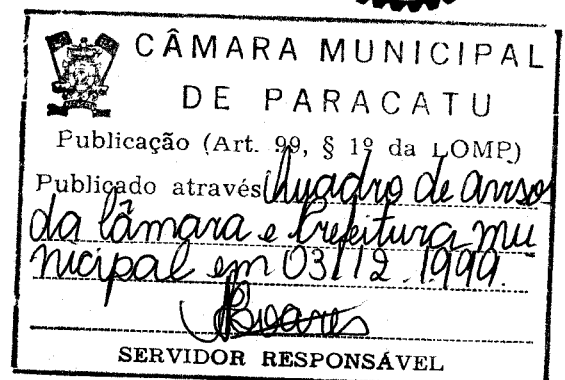 CÂMARA MUNICIPAL
DE PARACATU
Publicação (Art. 99, § 1º da LOMP)
Publicado através Quadro de aviso
da Câmara e Prefeitura mu
nicipal em 03/12.1999.
SERVIDOR RESPONSÁVEL